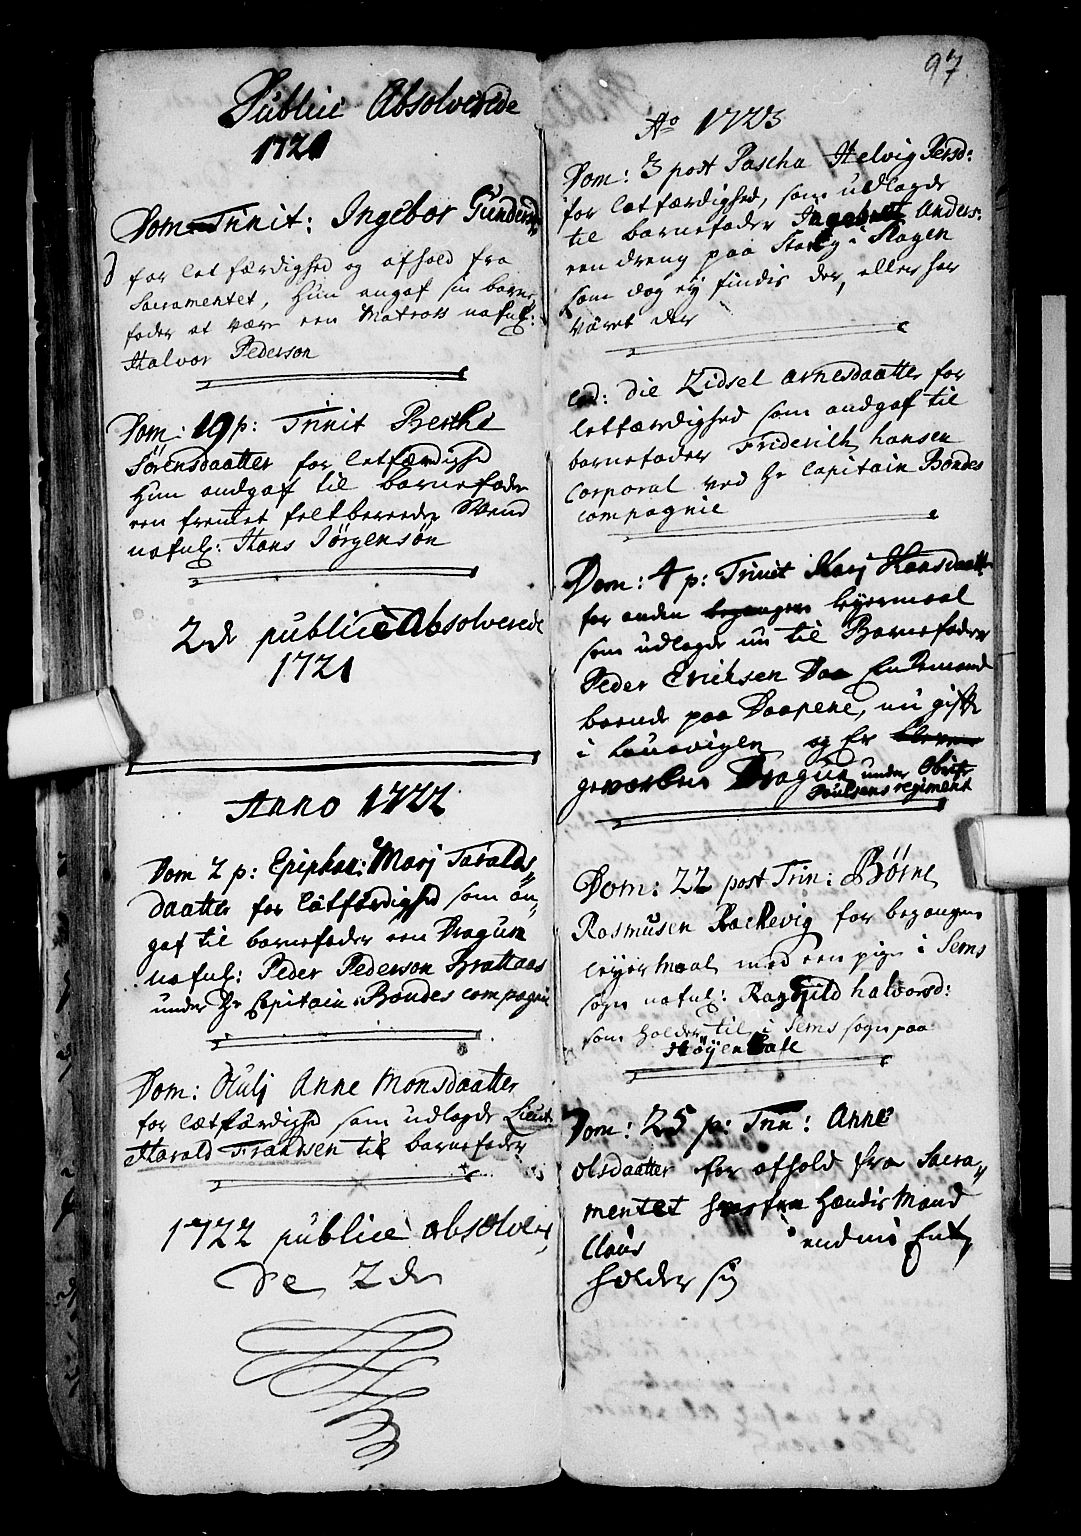 Publice Absolverede
1721
Dom Trinit: Ingebor Gunders
for letfærdighed og afhold fra
Sacramentet, hun angaf sin barne
fader at være een Matros nafnl:
Halvor Pederson
Dom: 19 p: Trinit Berthe
Sørensdaatter for letfærdighed
hun andgaf til barnefader
een fremmet feltbereeder Svend
nafnl: Hans Jørgensøn
2de publice Absolverede
1721
Anno 1722
Dom 2 p: Epiphan: Marj Taralds
daatter for letfærdighed som an
gaf til barnefader een Dragun
nafnl: Peder Pederson Brattaas
under Hr Capitain Bondes compagnie
Dom: Øculj Anne Monsdaatter
for lætfærdighed som udlagde Lieut
Harald Frandsen til barnefader
1722 publice absolver
de 2de
97
Ao 1723
Dom: 3 post Pascha Helvig Persd:
for letfærdighed, som udlagde
til barnefader Ingebret Anders:
een dreng paa i Slagen
som dog ej findis der, eller har
været der
eod: die Zidsel arnesdaatter for
letfærdighed som andgaf til
barnefader Friderich hansen
Corporal ved Hr Capitain Bondes
compagnie
Dom: 4 p: Trinit Marj Hansdaatter
for anden begangen leyermaal
som udlagde nu til Barnefader
Peder Erichsen Daa Enkemand
boende paa Vaapene, nu gift
i Laurvigen og Er
geworben Dragun under Obrist
Poulsens regiment
Dom: 22 post Trin: Børne
Rasmusen Rackevig for begangen
leyermaal med een pige i Sems
sogn nafnl: Ragnild halvorsd:
som holder til i Sems sogn paa
Høyen
Dom: 25 p: Trin: Anne
olsdaatter for afhold fra Sacra
mentet hendis Mand
Claus endnu Ent
holder sig